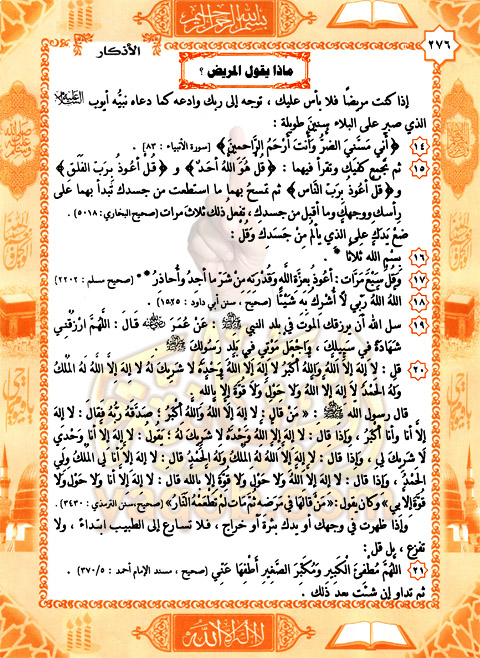 بسم الله الرحمن الرحيم
٢٧٦
الأذكار
ماذا يقول المريض ؟
إذا كنت مريضًا فلا بأس عليك ، توجه إلى ربك وادعه كما دعاه نبيُّه أيوب
الذي صبر على البلاء سنين طويلة :
١٤ ﴿ أَنِّي مَسَّنِيَ الضُّرُّ وَأَنتَ أَرْحَمُ الرَّاحِمِينَ ﴾ [سورة الأنبياء : ٨٣] .
١٥ ثم تجمع كفيك وتقرأ فيهما : ﴿ قُلْ هُوَ اللَّهُ أَحَدٌ ﴾ و ﴿ قُلْ أَعُوذُ بِرَبِّ الْفَلَقِ ﴾
و ﴿ قُلْ أَعُوذُ بِرَبِّ النَّاسِ ﴾ ثم تمسح بهما ما استطعت من جسدك تبدأ بهما على
رأسك ووجهك وما أقبل من جسدك ، تفعل ذلك ثلاث مرات (صحيح البخاري: ٥٠١٨) .
ضَعْ يَدَكَ عَلَى الَّذِي يَأْلَمُ مِنْ جَسَدِكَ وَقُلْ :
١٦ بِسْمِ اللَّهِ ثَلاثًا * .
١٧ وَقُلْ سَبْعَ مَرَّاتٍ : أَعُوذُ بِعِزَّةِ اللَّهِ وَقُدْرَتِهِ مِنْ شَرِّ مَا أَجِدُ وَأُحَاذِرُ ** (صحيح مسلم : ٢٢٠٢)
١٨ اللهُ اللهُ رَبِّي لَا أُشْرِكُ بِهِ شَيْئًا (صحيح ، سنن أبي داود : ١٥٢٥) .
١٩ سل الله أن يرزقك الموت في بلد النبي ﷺ : عَنْ عُمَرَ قَالَ : اللَّهُمَّ ارْزُقْنِي
شَهَادَةً فِي سَبِيلِكَ ، وَاجْعَلْ مَوْتِي فِي بَلَدِ رَسُولِكَ ﷺ .
٢٠ قل : لَا إِلَهَ إِلَّا اللَّهُ وَاللَّهُ أَكْبَرُ لَا إِلَهَ إِلَّا اللَّهُ وَحْدَهُ لَا شَرِيكَ لَهُ لَا إِلَهَ إِلَّا اللَّهُ لَهُ الْمُلْكُ
وَلَهُ الْحَمْدُ لَا إِلَهَ إِلَّا اللَّهُ وَلَا حَوْلَ وَلَا قُوَّةَ إِلَّا بِاللَّهِ
قال رسول الله ﷺ : « مَنْ قَالَ : لَا إِلَهَ إِلَّا اللَّهُ وَاللَّهُ أَكْبَرُ ؛ صَدَّقَهُ رَبُّهُ فَقَالَ : لَا إِلَهَ
إِلَّا أَنَا وَأَنَا أَكْبَرُ ، وَإِذَا قَالَ : لَا إِلَهَ إِلَّا اللَّهُ وَحْدَهُ لَا شَرِيكَ لَهُ ؛ يَقُولُ : لَا إِلَهَ إِلَّا أَنَا وَحْدِي
لَا شَرِيكَ لِي ، وَإِذَا قَالَ : لَا إِلَهَ إِلَّا اللَّهُ لَهُ الْمُلْكُ وَلَهُ الْحَمْدُ قَالَ : لَا إِلَهَ إِلَّا أَنَا لِيَ الْمُلْكُ وَلِيَ
الْحَمْدُ ، وَإِذَا قَالَ : لَا إِلَهَ إِلَّا اللَّهُ وَلَا حَوْلَ وَلَا قُوَّةَ إِلَّا بِاللَّهِ قَالَ : لَا إِلَهَ إِلَّا أَنَا وَلَا حَوْلَ وَلَا
قُوَّةَ إِلَّا بِي » وَكَانَ يَقُولُ : « مَنْ قَالَهَا فِي مَرَضِهِ ثُمَّ مَاتَ لَمْ تَطْعَمْهُ النَّارُ » (صحيح، سنن الترمذي : ٣٤٣٠) .
وإذا ظهرت في وجهك أو يدك بثرة أو خراج ، فلا تسارع إلى الطبيب ابتداءً ، ولا
تفزع ، بل قل :
٢١ اللَّهُمَّ مُطْفِئَ الْكَبِيرِ وَمُكَبِّرَ الصَّغِيرِ أَطْفِهَا عَنِّي (صحيح ، مسند الإمام أحمد : ٣٧٠/٥) .
ثم تداو إن شئت بعد ذلك .
لا إله إلا الله